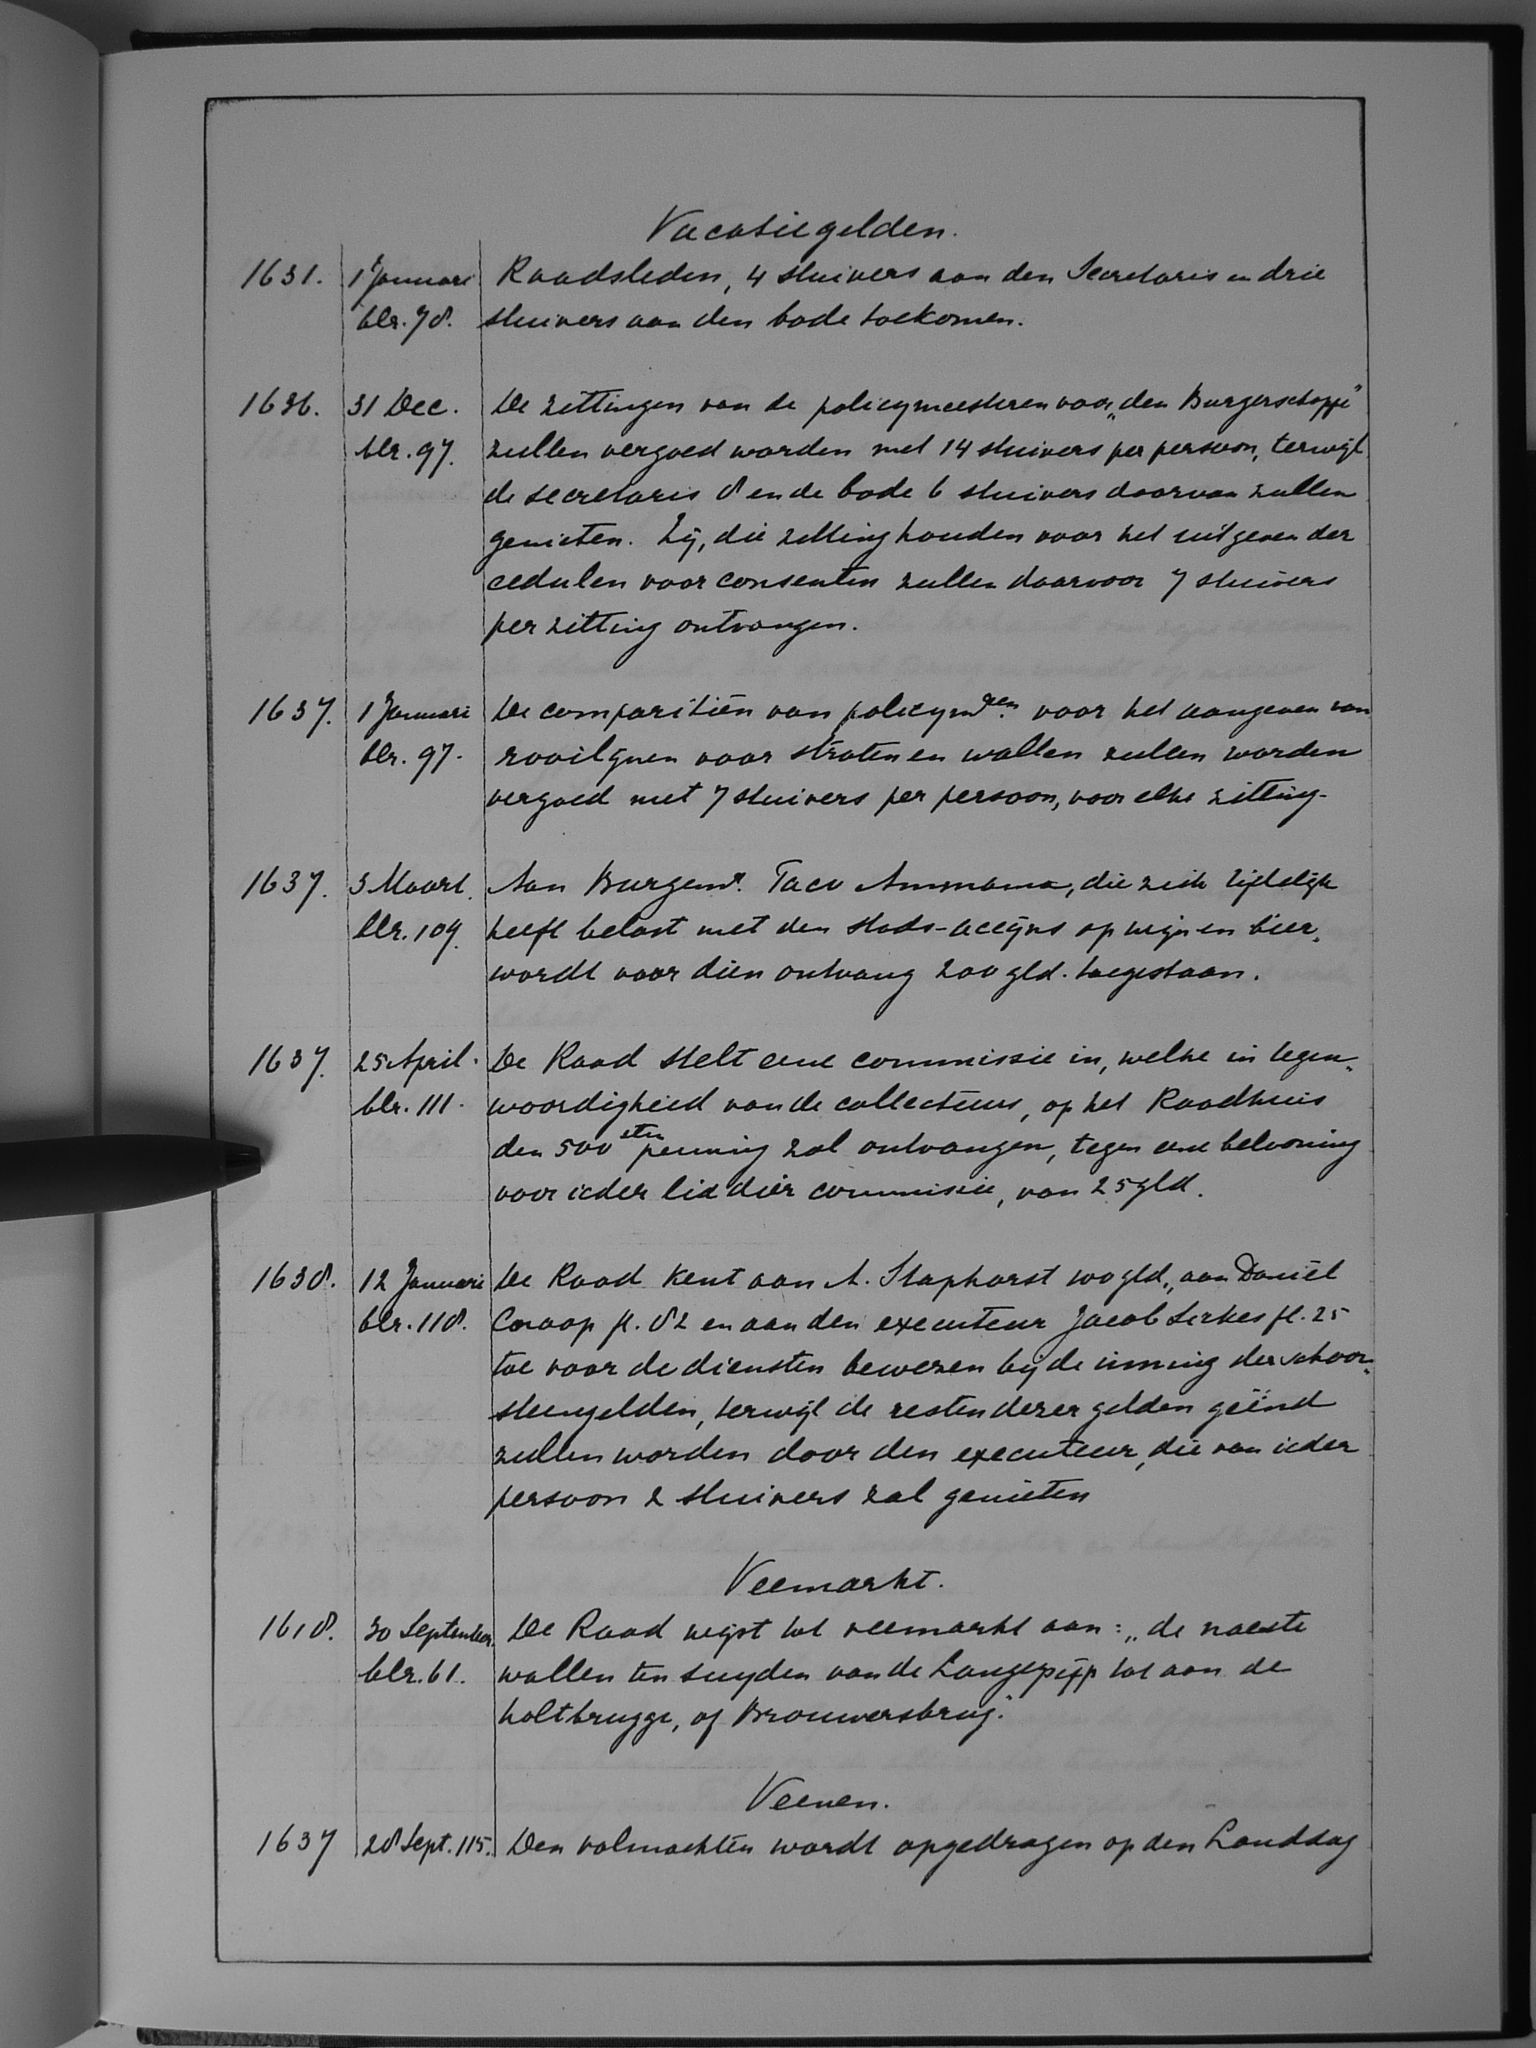 Vacatiegelden.
1631. 1 Januari Raadsleden, 4 stuivers aan den Secretaris en drie
blz. 78. stuivers aan den bode toekomen.
1636. 31 Dec. De zittingen van de policymeesteren voor „den Burgerschappe"
blz. 97. zullen vergoed worden met 14 stuivers per persoon, terwijl
de secretaris 8 en de bode 6 stuivers daarvan zullen
genieten. Zij, die zitting houden voor het uitgeven der
cedulen voor consenten zullen daarvoor 7 stuivers
per zitting ontvangen.
1637. 1 Januari De comparitiën van policymren. voor het aangeven van
blz. 97. rooilijnen voor straten en wallen zullen worden
vergoed met 7 stuivers per persoon, voor elke zitting.
1637. 3 Maart. Aan Burgemr. Taco Ammama, die zich tijdelijk
blz. 109. heeft belast met den stads-accijns op wijn en bier,
wordt voor dien ontvang 200 gld. toegestaan.
1637. 25 April. De Raad stelt eene commissie in, welke in tegen-
blz. 111. woordigheid van de collecteurs, op het Raadhuis
den 500sten penning zal ontvangen, tegen eene belooning
voor ieder lid dier commissie, van 25 gld.
1638. 12 Januari De Raad kent aan A. Staphorst 100 gld., aan Daniël
blz. 118. Coraop fl. 82 en aan den executeur Jacob Sirkes fl. 25
toe voor de diensten bewezen bij de inning der schoor-
steengelden, terwijl de resten dezer gelden geïnd
zullen worden door den executeur, die van ieder
persoon 2 stuivers zal genieten
Veemarkt.
1618. 30 September De Raad wijst tot veemarkt aan: „de naeste
blz. 61. wallen ten suyden van de Langepijp tot aan de
holtbrugge, of Brouwersbrug."
Veenen.
1637 28 Sept. 115. Den volmachten wordt opgedragen op den Landdag